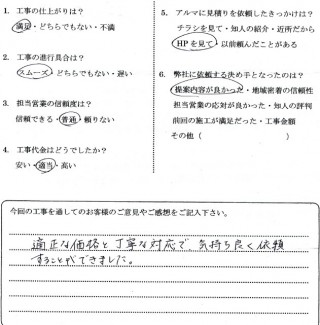 1. 工事の仕上がりは？
満足・どちらでもない・不満
2. 工事の進行具合は？
スムーズ・どちらでもない・遅い
3. 担当営業の信頼度は？
信頼できる・普通・頼りない
4. 工事代金はどうでしたか？
安い・適当・高い
5. アルマに見積りを依頼したきっかけは？
チラシを見て・知人の紹介・近所だから
HPを見て・以前頼んだことがある
6. 弊社に依頼する決め手となったのは？
提案内容が良かった・地域密着の信頼性
担当営業の応対が良かった・知人の評判
前回の施工が満足だった・工事金額
その他（　　　　　　　　　　）
今回の工事を通してのお客様のご意見やご感想をご記入下さい。
適正な価格と丁寧な対応で気持ち良く依頼
することができました。